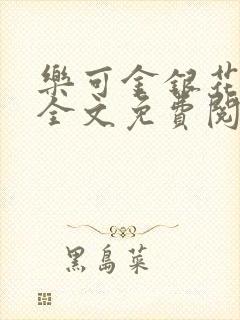 樂可金銀花
全文免費閱
黑島菜